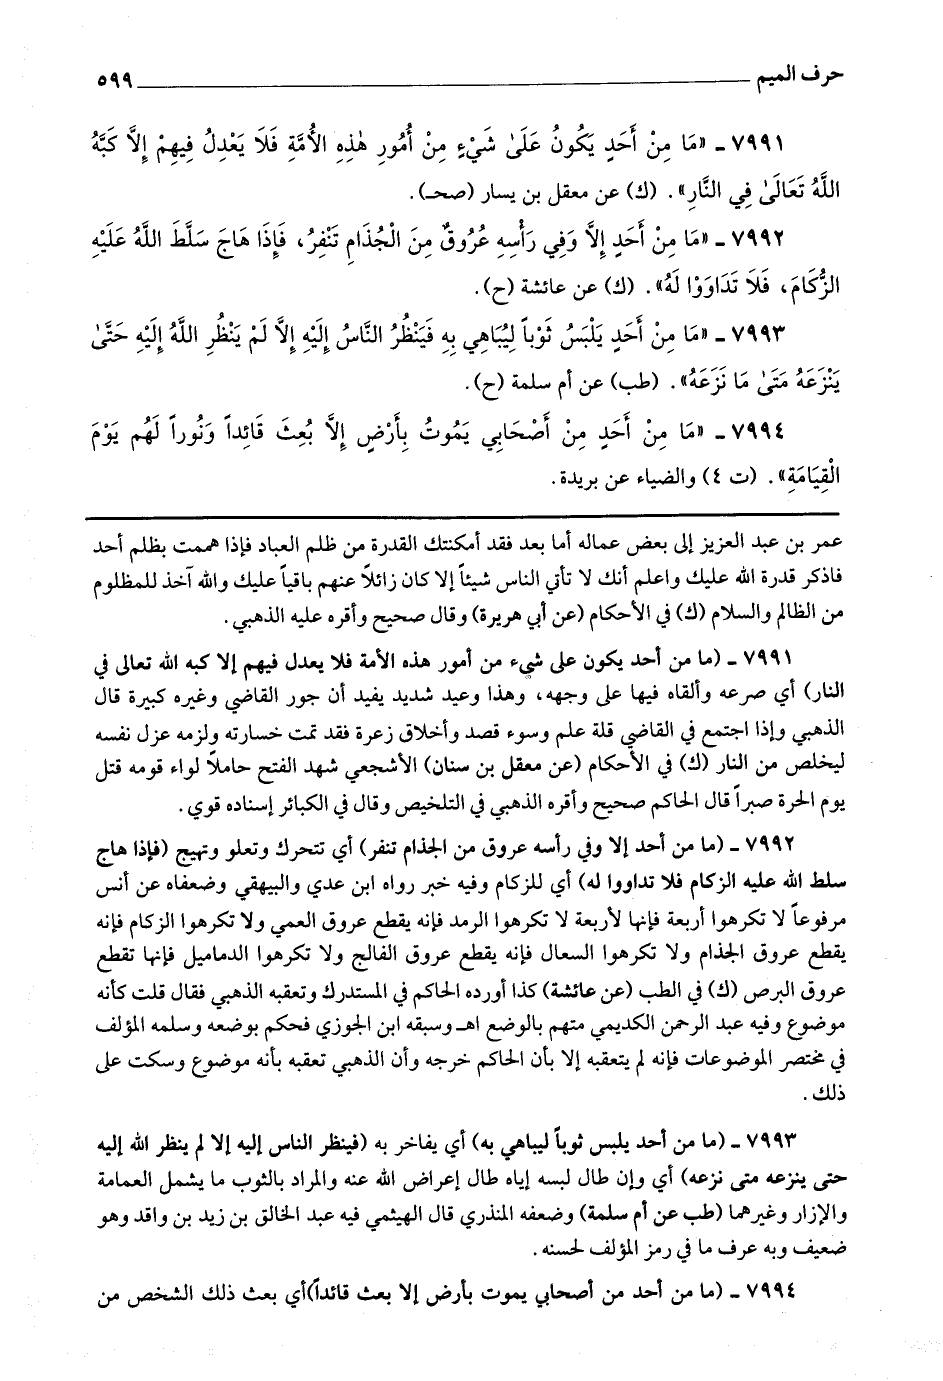 حرف الميم ٥٩٩
٧٩٩١ ـ «مَا مِنْ أَحَدٍ يَكُونُ عَلَىٰ شَيْءٍ مِنْ أُمُورِ هٰذِهِ الأُمَّةِ فَلَا يَعْدِلُ فِيهِمْ إِلَّا كَبَّهُ
اللَّهُ تَعَالَىٰ فِي النَّارِ». (ك) عن معقل بن يسار (صحـ).
٧٩٩٢ ـ «مَا مِنْ أَحَدٍ إِلَّا وَفِي رَأْسِهِ عُرُوقٌ مِنَ الْجُذَامِ تَنْفِرُ، فَإِذَا هَاجَ سَلَّطَ اللَّهُ عَلَيْهِ
الزُّكَامَ، فَلَا تَدَاوَوْا لَهُ». (ك) عن عائشة (ح).
٧٩٩٣ ـ «مَا مِنْ أَحَدٍ يَلْبَسُ ثَوْباً لِيُبَاهِي بِهِ فَيَنْظُرُ النَّاسُ إِلَيْهِ إِلَّا لَمْ يَنْظُرِ اللَّهُ إِلَيْهِ حَتَّىٰ
يَنْزَعَهُ مَتَىٰ مَا نَزَعَهُ». (طب) عن أم سلمة (ح).
٧٩٩٤ ـ «مَا مِنْ أَحَدٍ مِنْ أَصْحَابِي يَمُوتُ بِأَرْضٍ إِلَّا بُعِثَ قَائِداً وَنُوراً لَهُم يَوْمَ
الْقِيَامَةِ». (ت ٤) والضياء عن بريدة.
عمر بن عبد العزيز إلى بعض عماله أما بعد فقد أمكنتك القدرة من ظلم العباد فإذا هممت بظلم أحد
فاذكر قدرة الله عليك واعلم أنك لا تأتي الناس شيئاً إلا كان زائلاً عنهم باقياً عليك والله آخذ للمظلوم
من الظالم والسلام (ك) في الأحكام (عن أبي هريرة) وقال صحيح وأقره عليه الذهبي.
٧٩٩١ ـ (ما من أحد يكون على شيء من أمور هذه الأمة فلا يعدل فيهم إلا كبه الله تعالى في
النار) أي صرعه وألقاه فيها على وجهه، وهذا وعيد شديد يفيد أن جور القاضي وغيره كبيرة قال
الذهبي وإذا اجتمع في القاضي قلة علم وسوء قصد وأخلاق زعرة فقد تمت خسارته ولزمه عزل نفسه
ليخلص من النار (ك) في الأحكام (عن معقل بن سنان) الأشجعي شهد الفتح حاملاً لواء قومه قتل
يوم الحرة صبراً قال الحاكم صحيح وأقره الذهبي في التلخيص وقال في الكبائر إسناده قوي.
٧٩٩٢ ـ (ما من أحد إلا وفي رأسه عروق من الجذام تنفر) أي تتحرك وتعلو وتهيج (فإذا هاج
سلط الله عليه الزكام فلا تداووا له) أي للزكام وفيه خبر رواه ابن عدي والبيهقي وضعفاه عن أنس
مرفوعاً لا تكرهوا أربعة فإنها لأربعة لا تكرهوا الرمد فإنه يقطع عروق العمي ولا تكرهوا الزكام فإنه
يقطع عروق الجذام ولا تكرهوا السعال فإنه يقطع عروق الفالج ولا تكرهوا الدماميل فإنها تقطع
عروق البرص (ك) في الطب (عن عائشة) كذا أورده الحاكم في المستدرك وتعقبه الذهبي فقال قلت كأنه
موضوع وفيه عبد الرحمن الكديمي متهم بالوضع اهـ وسبقه ابن الجوزي فحكم بوضعه وسلمه المؤلف
في مختصر الموضوعات فإنه لم يتعقبه إلا بأن الحاكم خرجه وأن الذهبي تعقبه بأنه موضوع وسكت على
ذلك.
٧٩٩٣ ـ (ما من أحد يلبس ثوباً ليباهي به) أي يفاخر به (فينظر الناس إليه إلا لم ينظر الله إليه
حتى ينزعه متى نزعه) أي وإن طال لبسه إياه طال إعراض الله عنه والمراد بالثوب ما يشمل العمامة
والإزار وغيرهما (طب عن أم سلمة) وضعفه المنذري قال الهيثمي فيه عبد الخالق بن زيد بن واقد وهو
ضعيف وبه عرف ما في رمز المؤلف لحسنه.
٧٩٩٤ ـ (ما من أحد من أصحابي يموت بأرض إلا بعث قائداً) أي بعث ذلك الشخص من